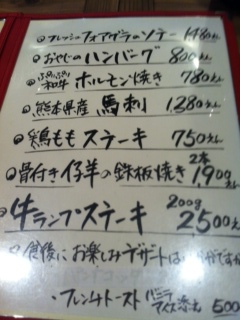 フレッシュフォアグラのソテー 1480えん
おやじのハンバーグ 800えん
ぷりぷり
和牛 ホルモン焼き 780えん
熊本県産 馬刺 1,280えん
鶏ももステーキ 750えん
骨付き仔羊の鉄板焼き 2本 1,900えん
牛ランプステーキ 200g 2500えん
食後にお楽しみデザートは ですか
・フレンチトースト バニラアイス添え 500